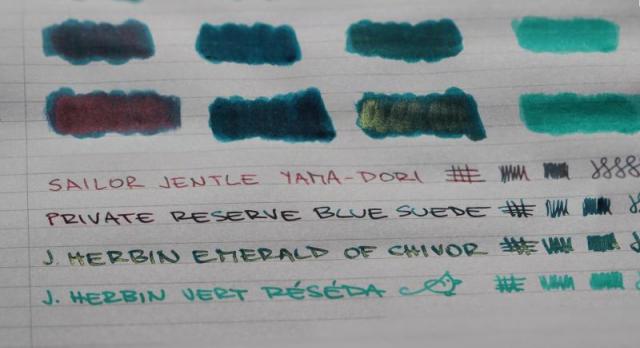 SAILOR JENTLE YAMA-DORI
PRIVATE RESERVE BLUE SUEDE
J. HERBIN EMERALD OF CHIVOR
J. HERBIN VERT RÉSÉDA